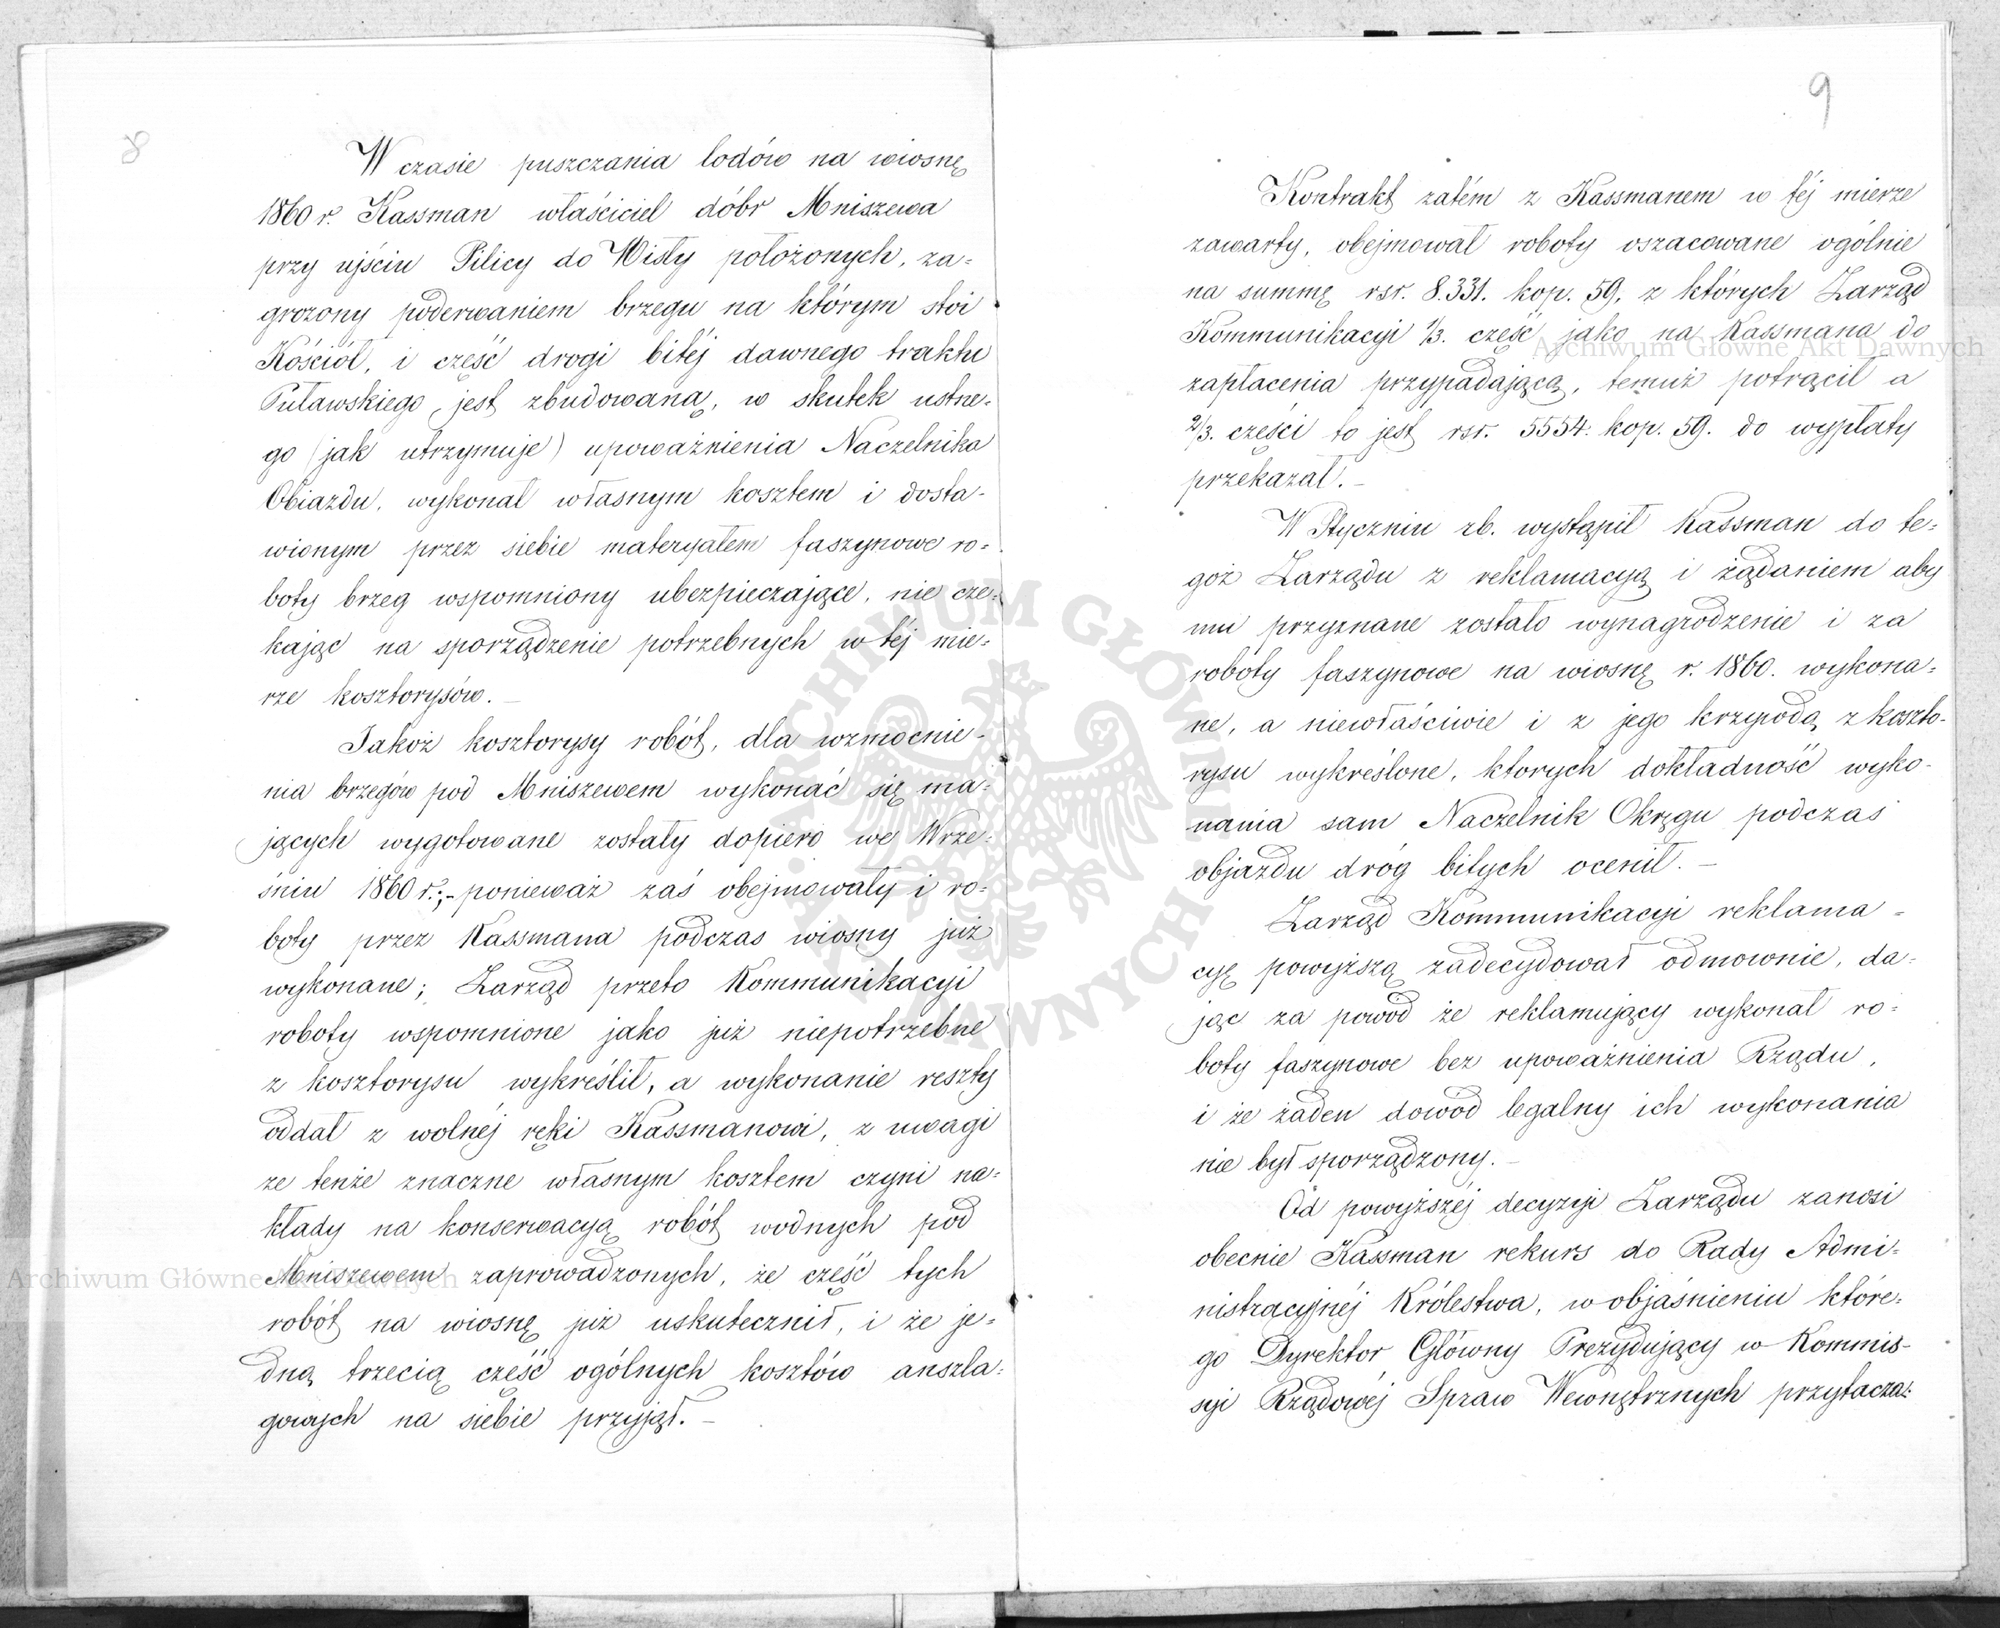 8
W czasie puszczania lodów na wiosnę
1860 r. Kassman właściciel dóbr Mniszewa
przy ujściu Pilicy do Wisły położonych, za-
grożony poderwaniem brzegu na którym stoi
Kościół, i część drogi bitéj dawnego traktu
Puławskiego jest zbudowaną, w skutek ustne-
go (jak utrzymuje) upoważnienia Naczelnika
Obiazdu, wykonał własnym kosztem i dosta-
wionym przez siebie materyałem faszynowe ro-
boty brzeg wspomniony ubezpieczające, nie cze-
kając na sporządzenie potrzebnych w téj mie-
rze kosztorysów. –
Jakoż kosztorysy robót, dla wzmocnie-
nia brzegów pod Mniszewem wykonać się ma-
jących wygotowane zostały dopiero we Wrze-
śniu 1860 r.;- ponieważ zaś obejmowały i ro-
boty przez Kassmana podczas wiosny już
wykonane; Zarząd przeto Kommunikacyi
roboty wspomnione jako już niepotrzebne
z kosztorysu wykréślił, a wykonanie reszty
oddał z wolnéj ręki Kassmanowi, z uwagi
że tenże znaczne własnym kosztem czyni na-
kłady na konserwacyą robót wodnych pod
Mniszewem zaprowadzonych, że część tych
robót na wiosnę już uskutecznił, i że je-
dną trzecią część ogólnych kosztów anszla-
gowych na siebie przyjął. –
9
Kontrakt zatém z Kassmanem w téj mierze
zawarty, obejmował roboty oszacowane ogólnie
na summę rsr. 8.331. kop. 59, z których Zarząd
Kommunikacyi 1/3. część jako na Kassmana do
zapłacenia przypadającą, temuż potrącił a
2/3. części to jest rsr. 5554. kop. 59. do wypłaty
przekazał. –
W Styczniu rb. wystąpił Kassman do te-
goż Zarządu z reklamacyą i żądaniem aby
mu przyznane zostało wynagrodzenie i za
roboty faszynowe na wiosnę r. 1860. wykona-
ne, a niewłaściwie i z jego krzywdą z koszto-
rysu wykréślone, których dokładność wyko-
nania sam Naczelnik Okręgu podczas
objazdu dróg bitych ocenił. –
Zarząd Kommunikacyi reklama-
cyę powyższą zadecydował odmownie, da-
jąc za powód że reklamujący wykonał ro-
boty faszynowe bez upoważnienia Rządu,
i że żaden dowód legalny ich wykonania
nie był sporządzony. –
Od powyższéj decyzyi Zarządu zanosi
obecnie Kassman rekurs do Rady Admi-
nistracyjnéj Królestwa, w objaśnieniu które-
go Dyrektor Główny Prezydujący w Kommis-
syi Rządowéj Spraw Wewnętrznych przytacza:
Archiwum Główne Akt Dawnych
Archiwum Główne Akt Dawnych
ARCHIWUM GŁÓWNE AKT DAWNYCH